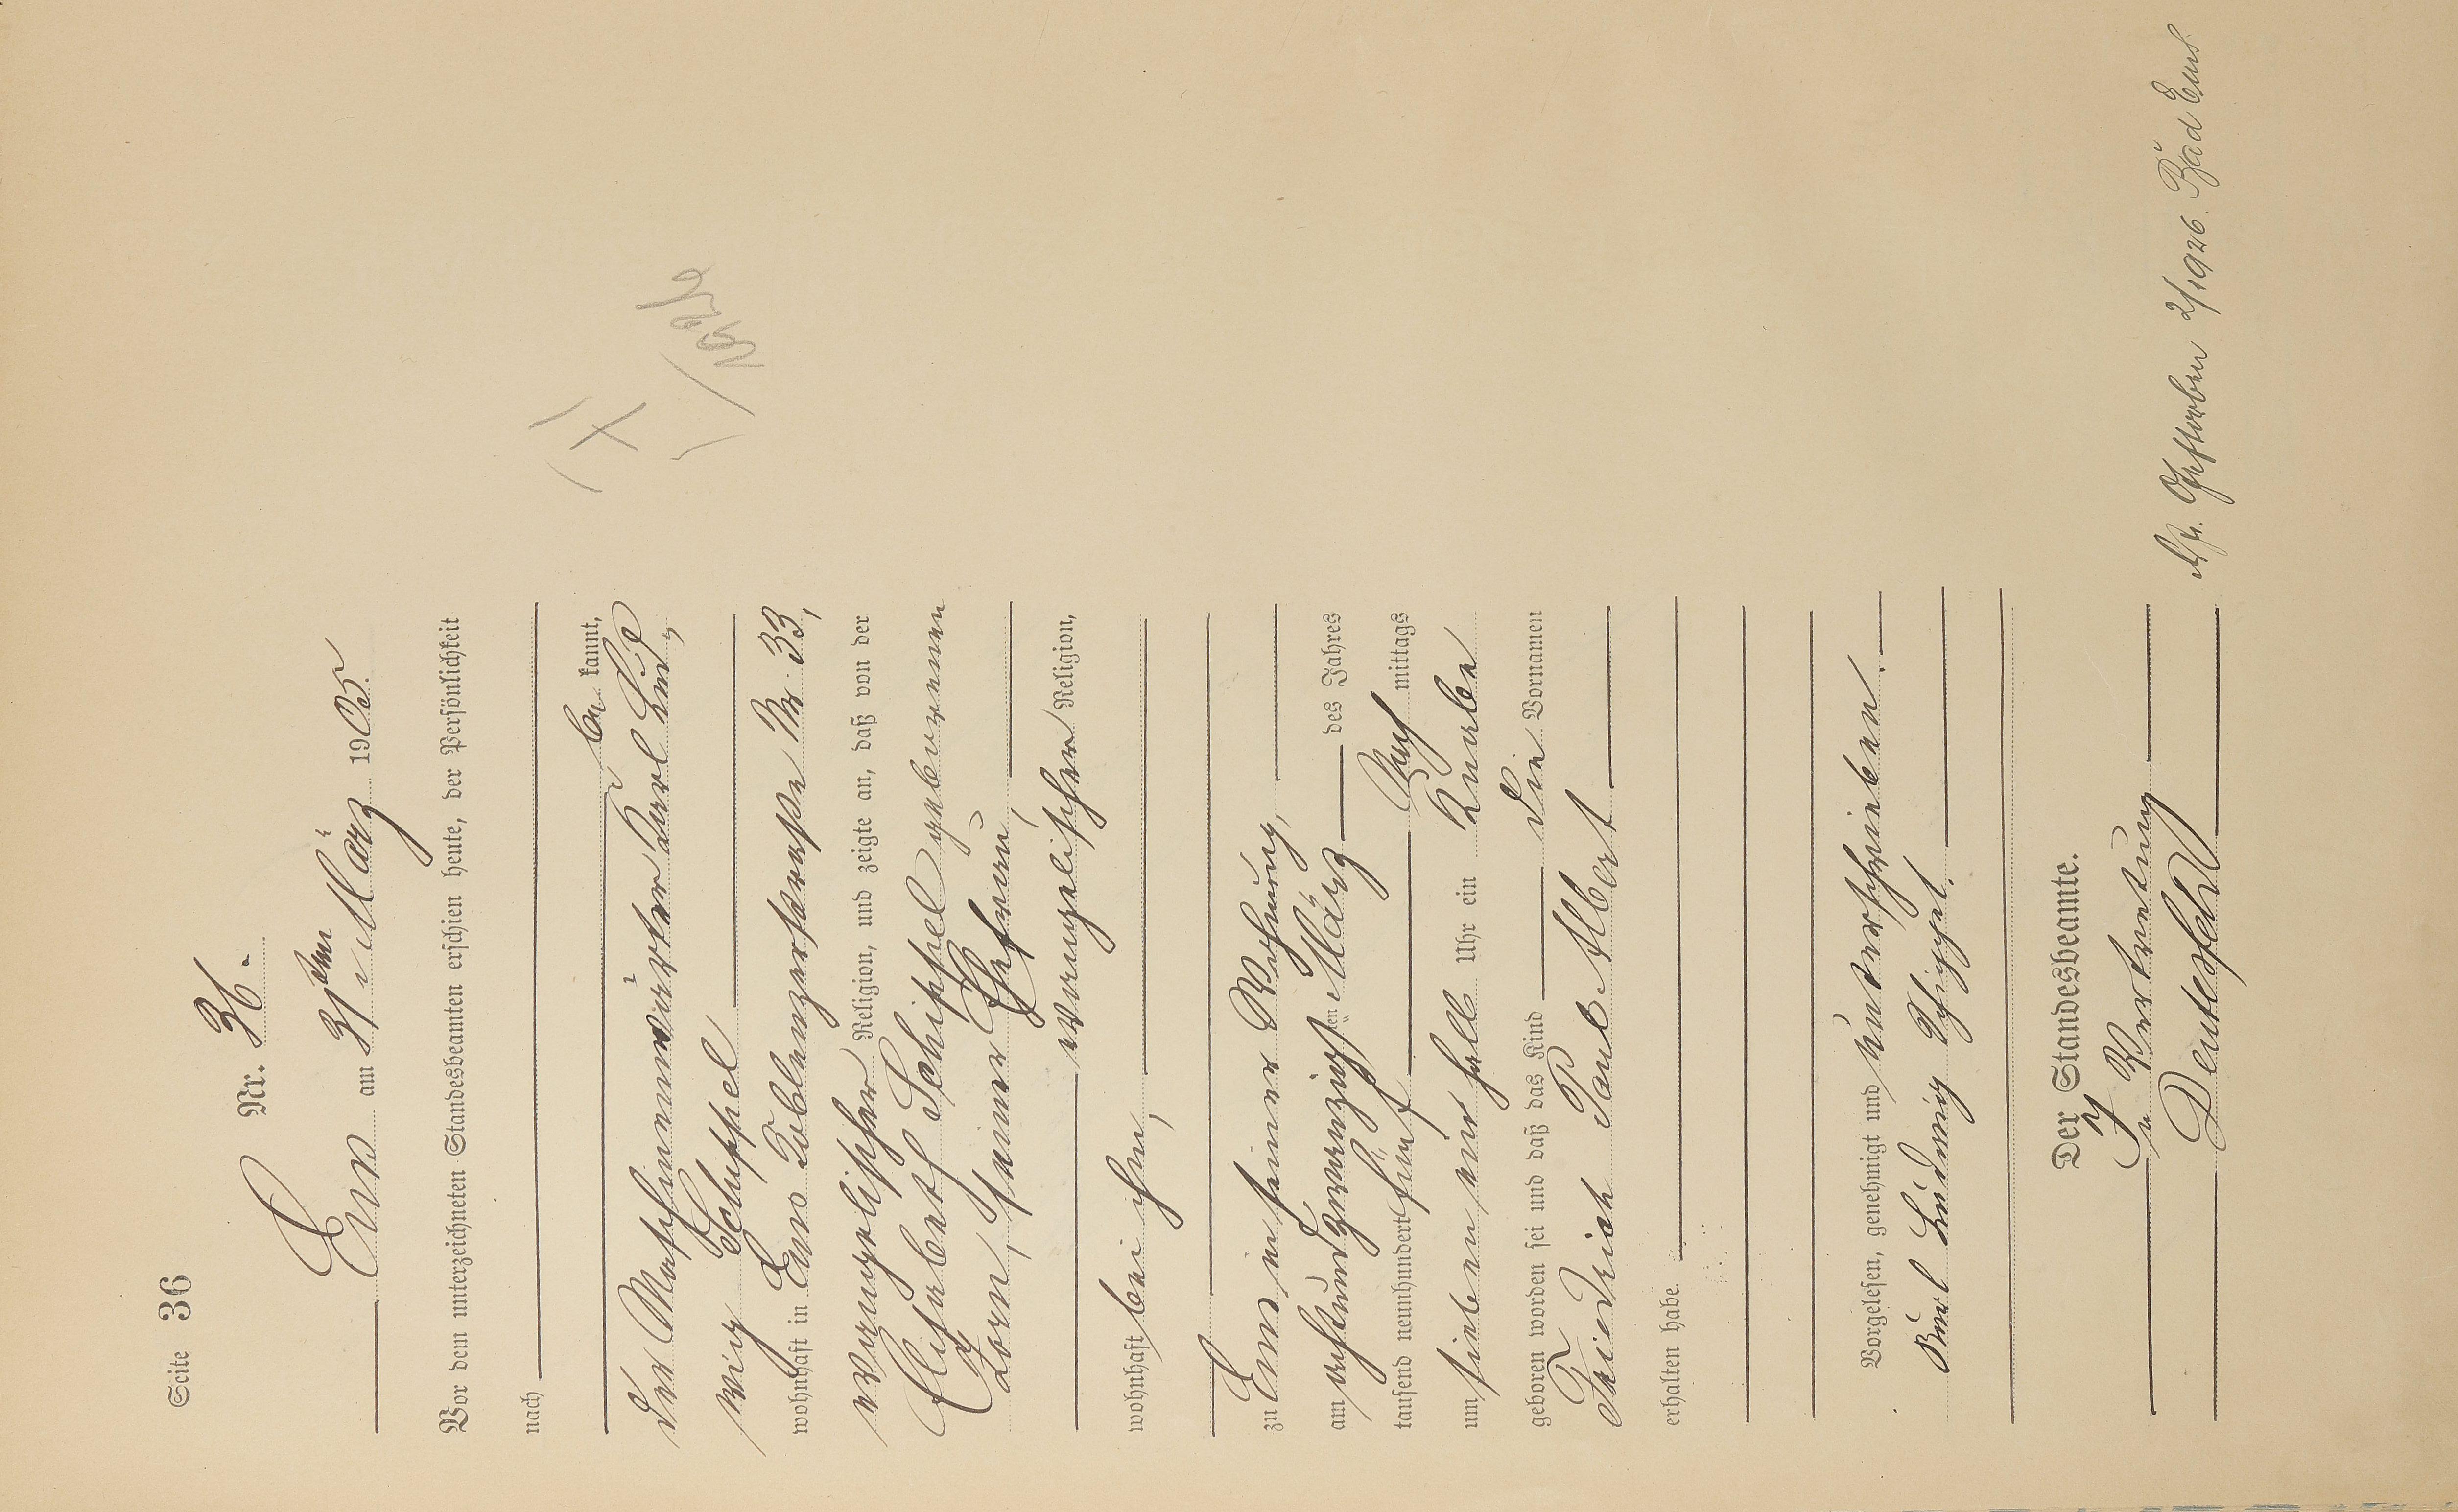 Seite 36
Nr. 36.
Ems am 31ten März 1905.
Vor dem unterzeichneten Standesbeamten erschien heute, der Persönlichkeit
nach
be kannt,
der Maschinenwärter Karl Lud„
wig Schuppel
wohnhaft in Ems Koblenzerstrasse Nr. 33,
evangelischer Religion, und zeigte an, daß von der
Elisabeth Schippel geborenen
Zorn, seiner Ehefrau,
evangelischer Religion,
wohnhaft bei ihm,
zu Ems in seiner Wohnung,
am achtundzwanzigsten März des Jahres
tausend neunhundert fünf Nach mittags
um sieben ein halb Uhr ein Knabe
geboren worden sei und daß das Kind die Vornamen
Friedrich Paul Albert
erhalten habe.
Vorgelesen, genehmigt und unterschrieben.
Karl Ludwig Schippel.
Der Standesbeamte.
In Vertretung
Deutesfeld
Gestorben 2/1926. Bad Ems.